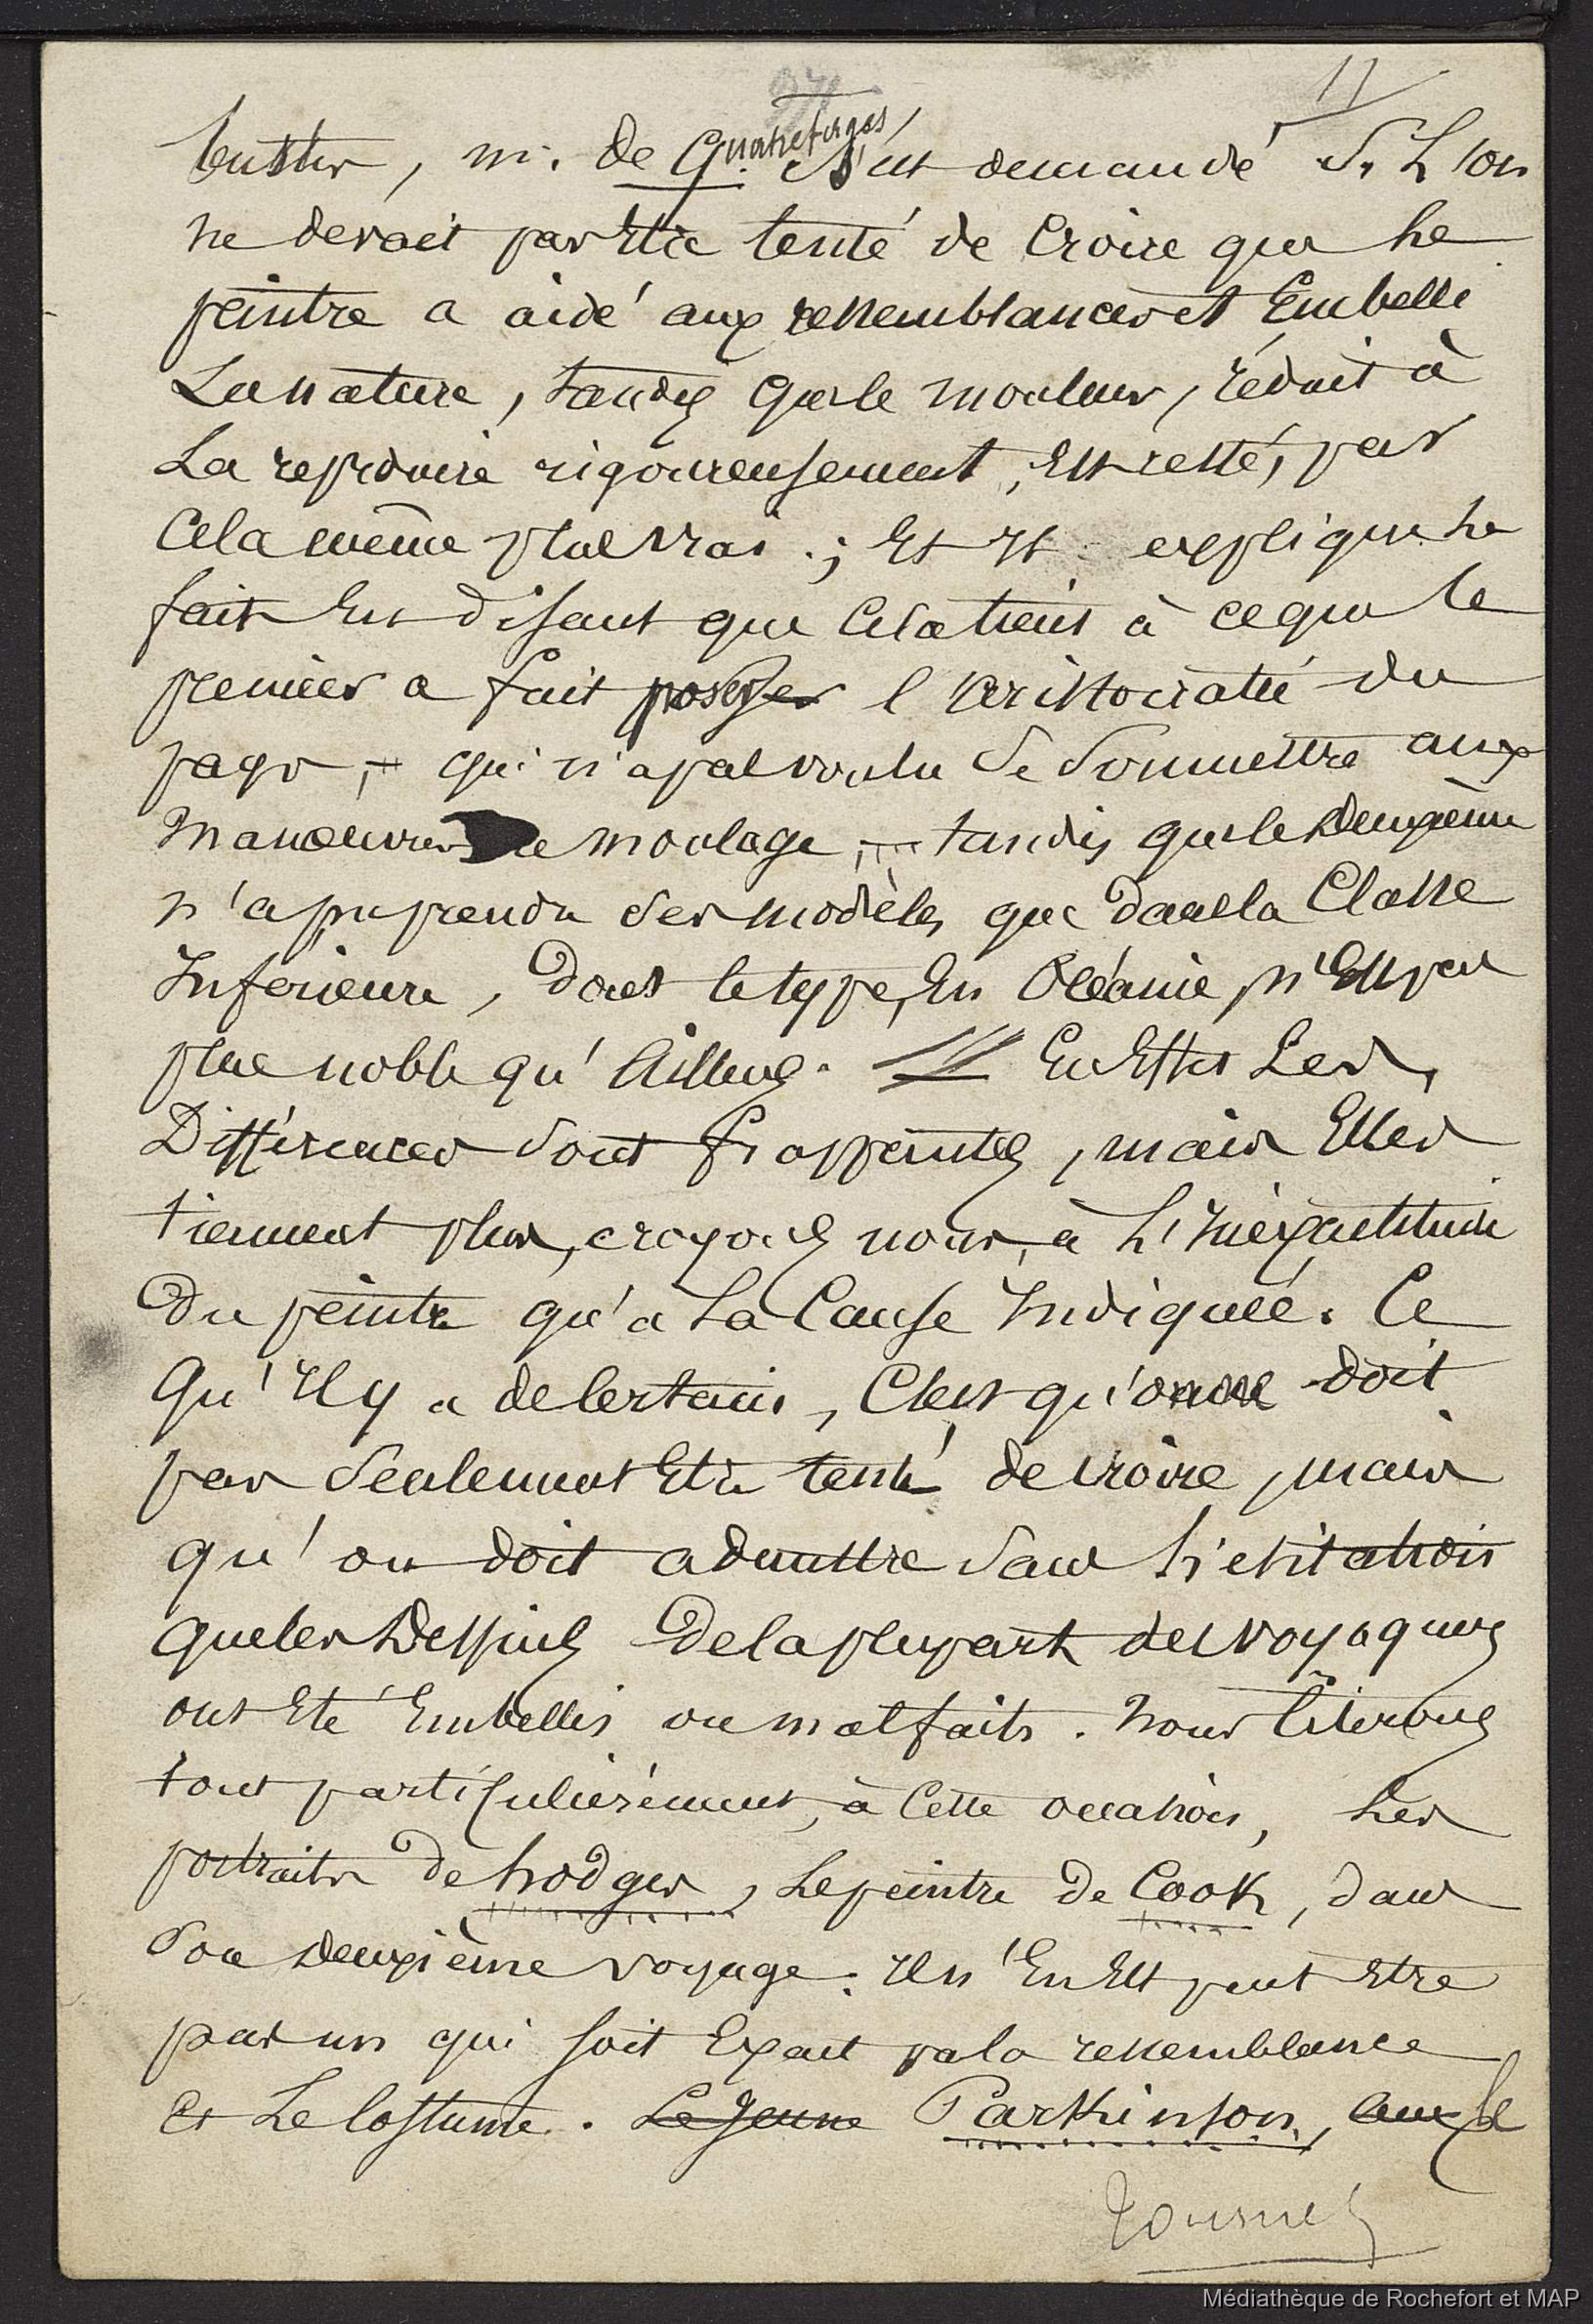 11
bustes, m. de Quatrefages s'est demandé si l'on
ne devait pas être tenté de croire que le
peintre a aidé aux ressemblances et Embelli
La nature, tandis que le mouleur, réduit à
La reproduire rigoureusement, Est resté, par
Cela même plus vrai ; Et Il explique le
fait En disant que Cela tient à ce que le
premier a fait poser l'aristocratie du
pays, qui n'a pas voulu se soumettre aux
manœuvres de moulage, tandis que le deuxième
n'a pu prendre ses modèles que dans la Classe
Inférieure, dont le type, En Océanie, n'Est pas
plus noble qu'Ailleurs. En Effet Les
Différences sont frappantes, mais Elles
tiennent plus, croyons nous, à L'Inéxactitude
Du peintre qu'à La Cause Indiquée. Ce
Qu'Il y a de Certain, C'est qu'on ne doit
pas seulement Etre tenté de croire, mais
qu'on doit admettre sans hésitation
que les Dessins De la plupart des voyageurs
ont Eté Embellis ou mal faits. Nous Citerons
tout particulièrement, à Cette occasion, Les
portraits de hodges, Le peintre de Cook, dans
son deuxième voyage. Il n'En Est peut Etre
pas un qui soit Exact par la ressemblance
Et Le Costume. Le Jeune Parkinson, le
Tournez
Médiathèque de Rochefort et MAP